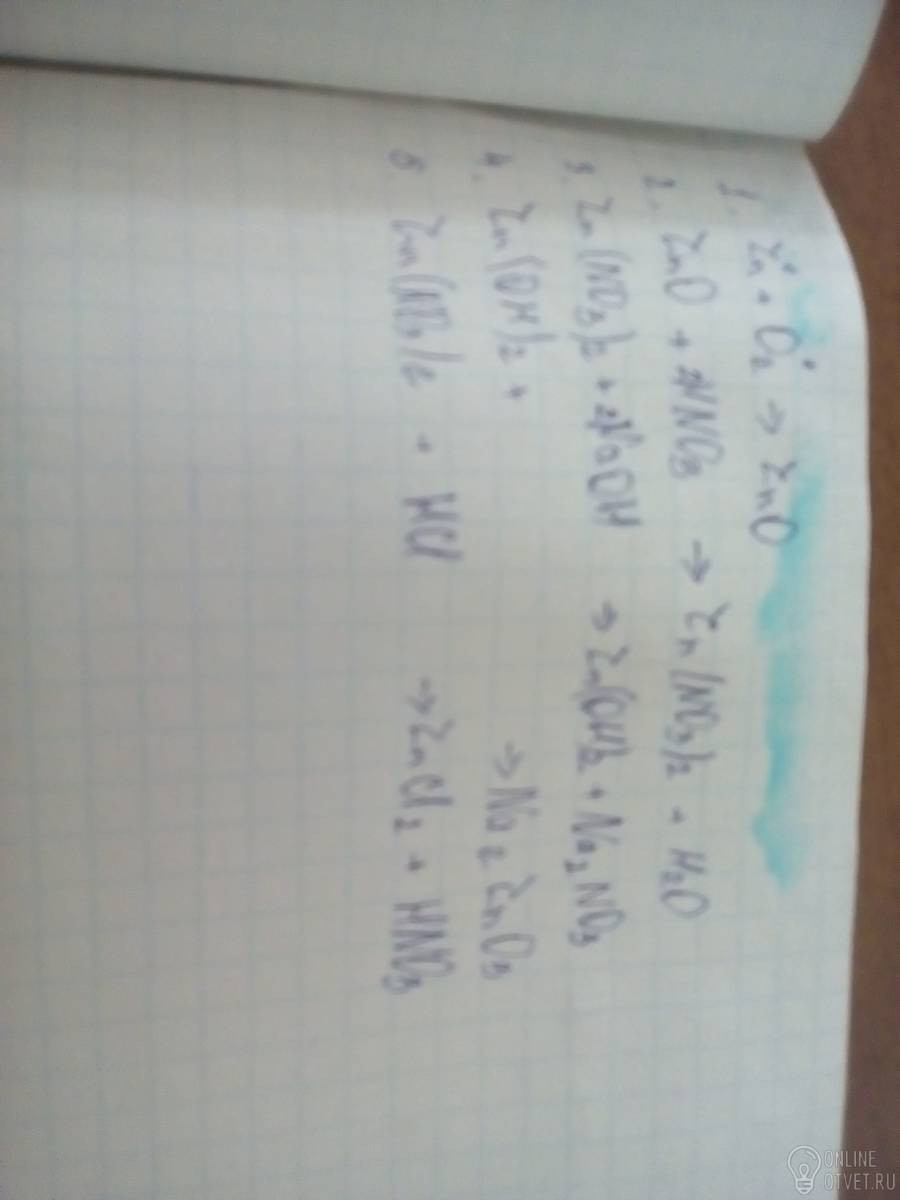 1. Zn + O2 → ZnO
2. ZnO + 2HNO3 → Zn(NO3)2 + H2O
3. Zn(NO3)2 + 2NaOH → Zn(OH)2 + Na2NO3
4. Zn(OH)2 + → Na2ZnO3
5. Zn(NO3)2 + HCl → ZnCl2 + HNO3
ONLINE
OTVET.RU